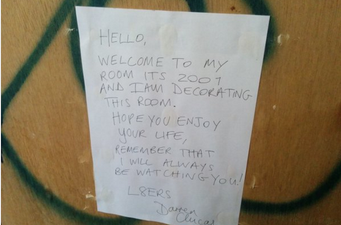 HELLO,
WELCOME TO MY
ROOM ITS 2001
AND I AM DECORATING
THIS ROOM.
HOPE YOU ENJOY
YOUR LIFE,
REMEMBER THAT
I WILL ALWAYS
BE WATCHING YOU!
L8ERS